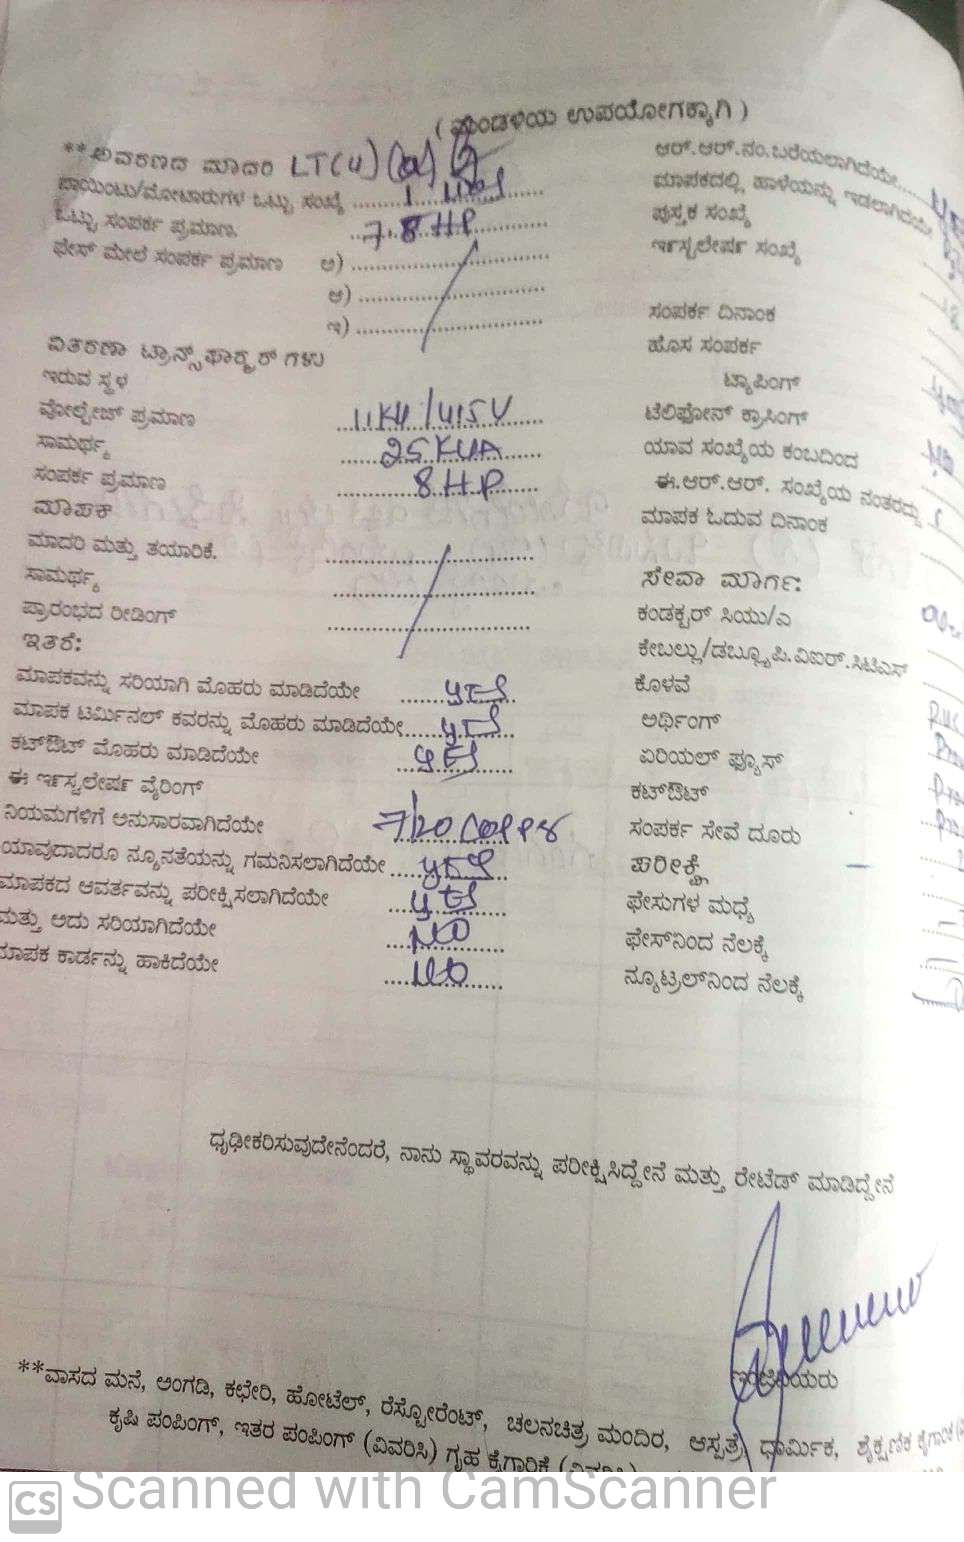 ( ಮಂಡಳಿಯ ಉಪಯೋಗಕ್ಕಾಗಿ )
**ಆವರಣದ ಮಾದರಿ LT(4)(a)
ಪಾಯಿಂಟು/ಮೋಟಾರುಗಳ ಒಟ್ಟು ಸಂಖ್ಯೆ ........ 1
ಒಟ್ಟು ಸಂಪರ್ಕ ಪ್ರಮಾಣ. 7.8 HP
ಫೇಸ್ ಮೇಲೆ ಸಂಪರ್ಕ ಪ್ರಮಾಣ ಅ) ........
ಆ) ........
ಇ) ........
ವಿತರಣಾ ಟ್ರಾನ್ಸ್‌ಫಾರ್ಮರ್ ಗಳು
ಇರುವ ಸ್ಥಳ
ವೋಲ್ಟೇಜ್ ಪ್ರಮಾಣ 11KV/415V
ಸಾಮರ್ಥ್ಯ 25 KVA
ಸಂಪರ್ಕ ಪ್ರಮಾಣ 8 H.P
ಮಾಪಕ
ಮಾದರಿ ಮತ್ತು ತಯಾರಿಕೆ. ........
ಸಾಮರ್ಥ್ಯ ........
ಪ್ರಾರಂಭದ ರೀಡಿಂಗ್ ........
ಇತರೆ:
ಮಾಪಕವನ್ನು ಸರಿಯಾಗಿ ಮೊಹರು ಮಾಡಿದೆಯೇ YES
ಮಾಪಕ ಟರ್ಮಿನಲ್ ಕವರನ್ನು ಮೊಹರು ಮಾಡಿದೆಯೇ YES
ಕಟ್‌ಔಟ್ ಮೊಹರು ಮಾಡಿದೆಯೇ YES
ಈ ಇರ್ನ್ಸ್ಟಲೇಷನ್ ವೈರಿಂಗ್
ನಿಯಮಗಳಿಗೆ ಅನುಸಾರವಾಗಿದೆಯೇ 7/20 COPPER
ಯಾವುದಾದರೂ ನ್ಯೂನತೆಯನ್ನು ಗಮನಿಸಲಾಗಿದೆಯೇ YES
ಮಾಪಕದ ಆವರ್ತವನ್ನು ಪರೀಕ್ಷಿಸಲಾಗಿದೆಯೇ YES
ಮತ್ತು ಅದು ಸರಿಯಾಗಿದೆಯೇ NO
ಮಾಪಕ ಕಾರ್ಡನ್ನು ಹಾಕಿದೆಯೇ NO
ಆರ್.ಆರ್.ನಂ.ಬರೆಯಲಾಗಿದೆಯೇ
ಮಾಪಕದಲ್ಲಿ ಹಾಳೆಯನ್ನು ಇಡಲಾಗಿದೆಯೇ
ಪುಸ್ತಕ ಸಂಖ್ಯೆ
ಸಂಖ್ಯೆ
ಸಂಪರ್ಕ ದಿನಾಂಕ
ಹೊಸ ಸಂಪರ್ಕ
ಟ್ಯಾಪಿಂಗ್
ಟೆಲಿಫೋನ್ ಕ್ರಾಸಿಂಗ್
ಯಾವ ಸಂಖ್ಯೆಯ ಕಂಬದಿಂದ
ಈ.ಆರ್.ಆರ್. ಸಂಖ್ಯೆಯ ನಂತರದ್ದು
ಮಾಪಕ ಓದುವ ದಿನಾಂಕ
ಸೇವಾ ಮಾರ್ಗ:
ಕಂಡಕ್ಟರ್ ಸಿಯು/ಎ
ಕೇಬಲ್ಲು/ಡಬ್ಲ್ಯೂಪಿ.ವಿಐರ್.ಸಿಟಿಎಸ್
ಕೊಳವೆ
ಅರ್ಥಿಂಗ್
ಏರಿಯಲ್ ಫ್ಯೂಸ್
ಕಟ್‌ಔಟ್
ಸಂಪರ್ಕ ಸೇವೆ ದೂರು
ಪರೀಕ್ಷೆ
ಫೇಸುಗಳ ಮಧ್ಯೆ
ಫೇಸ್‌ನಿಂದ ನೆಲಕ್ಕೆ
ನ್ಯೂಟ್ರಲ್‌ನಿಂದ ನೆಲಕ್ಕೆ
ಧೃಢೀಕರಿಸುವುದೇನೆಂದರೆ, ನಾನು ಸ್ಥಾವರವನ್ನು ಪರೀಕ್ಷಿಸಿದ್ದೇನೆ ಮತ್ತು ರೇಟೆಡ್ ಮಾಡಿದ್ದೇನೆ
ಇಂಜಿನಿಯರು
**ವಾಸದ ಮನೆ, ಅಂಗಡಿ, ಕಛೇರಿ, ಹೋಟೆಲ್, ರೆಸ್ಟೋರೆಂಟ್, ಚಲನಚಿತ್ರ ಮಂದಿರ, ಆಸ್ಪತ್ರೆ, ಧಾರ್ಮಿಕ, ಶೈಕ್ಷಣಿಕ ಕೈಗಾರಿಕೆ
ಕೃಷಿ ಪಂಪಿಂಗ್, ಇತರ ಪಂಪಿಂಗ್ (ವಿವರಿಸಿ) ಗೃಹ ಕೈಗಾರಿಕೆ
CS Scanned with CamScanner